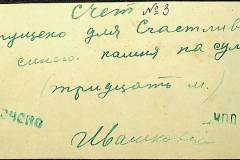 Счет №3
пущено для Счастлив
синего камня на сум
(тридцать м.)
ЧЕНО
ЧПП
Ивашков